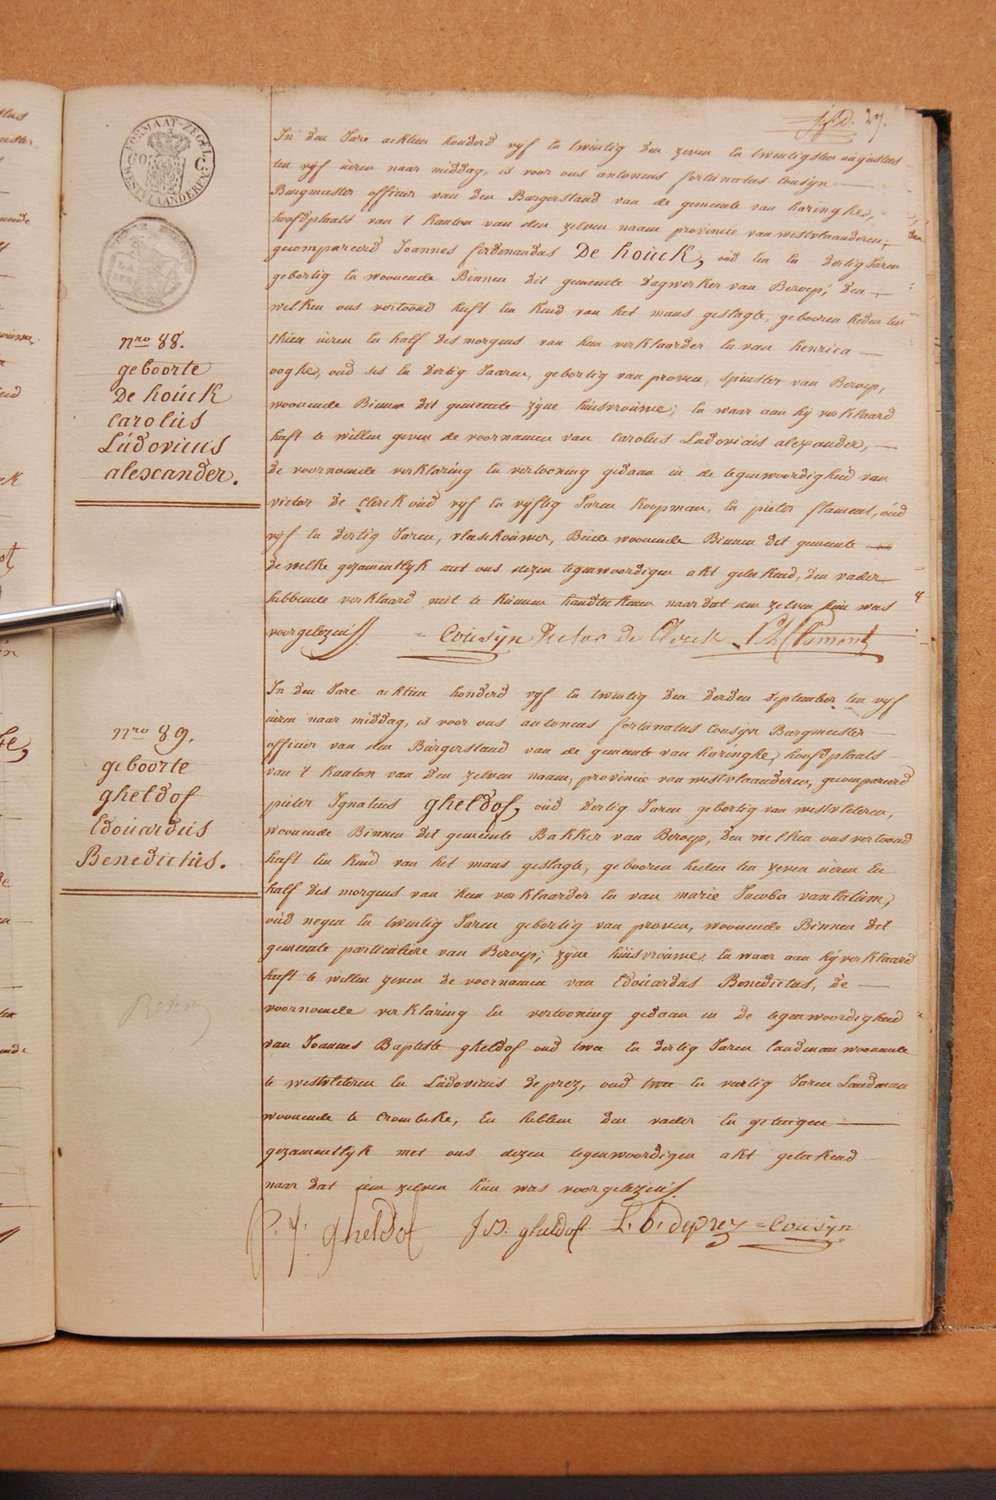 27.
FORMAAT-ZEGEL
WESTVLAANDEREN
nro 88.
geboorte
De houck
Carolus
Ludovicus
alexander.
In den Jare achtien honderd vyf en twintig den zeven en twintigsten augustus
ten vyf uren naar middag, is voor ons antonius fortunatus Cousyn
Burgmeester officier van den Burgerstand van de gemeente van haringhe,
hoofdplaats van 't kanton van den zelven naam provincie van westvlaanderen,
gecompareerd Joannes ferdinandus De houck, oud een en dertig Jaren
gebortig en woonende Binnen dit gemeente dagwerker van Beroep; den
welken ons vertoond heeft een kind van het mans geslagte, gebooren heden ten
thien uren en half des morgens van hem verklaarder en van henrica
ooghe, oud ses en dertig Jaaren, gebortig van proven, spinster van Beroep,
woonende Binnen dit gemeente zyne huisvrouwe; en waar aan hy verklaard
heeft te willen geven de voornamen van Carolus Ludovicus alexander,
de voornoemde verklaring en vertooning gedaan in de tegenwoordigheid van
victor De Clerck oud vyf en vyftig Jaren koopman, en pieter flament, oud
vyf en dertig Jaren, vlaskouwer, Beide woonende Binnen dit gemeente
de welke gezamentlyk met ons dezen tegenwoordigen akt geteekend, den vader
hebbende verklaard niet te kunnen handteekenen naar dat den zelven hun was
voorgelezen.
Cousyn Victor de Clerck
nro 89.
geboorte
gheldof
Edouardus
Benedictus.
In den Jare achtien honderd vyf en twintig den derden September ten vyf
uren naar middag, is voor ons antonius fortunatus Cousyn Burgmeester
officier van den Burgerstand van de gemeente van haringhe, hoofdplaats
van 't kanton van den zelven naam, provincie van westvlaanderen, gecompareerd
pieter Ignatius gheldof, oud dertig Jaren gebortig van westvleteren,
woonende Binnen dit gemeente Bakker van Beroep, den welken ons vertoond
heeft een kind van het mans geslagte, gebooren heden ten zeven uren en
half des morgens van hem verklaarder en van marie Jacoba
oud negen en twintig Jaren gebortig van proven, woonende Binnen dit
gemeente particuliere van Beroep; zyne huisvrouwe, en waar aan hy verklaard
heeft te willen geven de voornamen van Edouardus Benedictus, de
voornoemde verklaring en vertooning gedaan in de tegenwoordigheid
van Joannes Baptiste gheldof oud twee en dertig Jaren landman woonende
te westvleteren en Ludovicus deprez, oud twee en veertig Jaren Landman
woonende te Crombeke, en hebben den vader en getuigen
gezamentlyk met ons dezen tegenwoordigen akt geteekend
naar dat den zelven hun was voorgelezen.
P. J. gheldof J B. gheldof L. B. deprez Cousyn